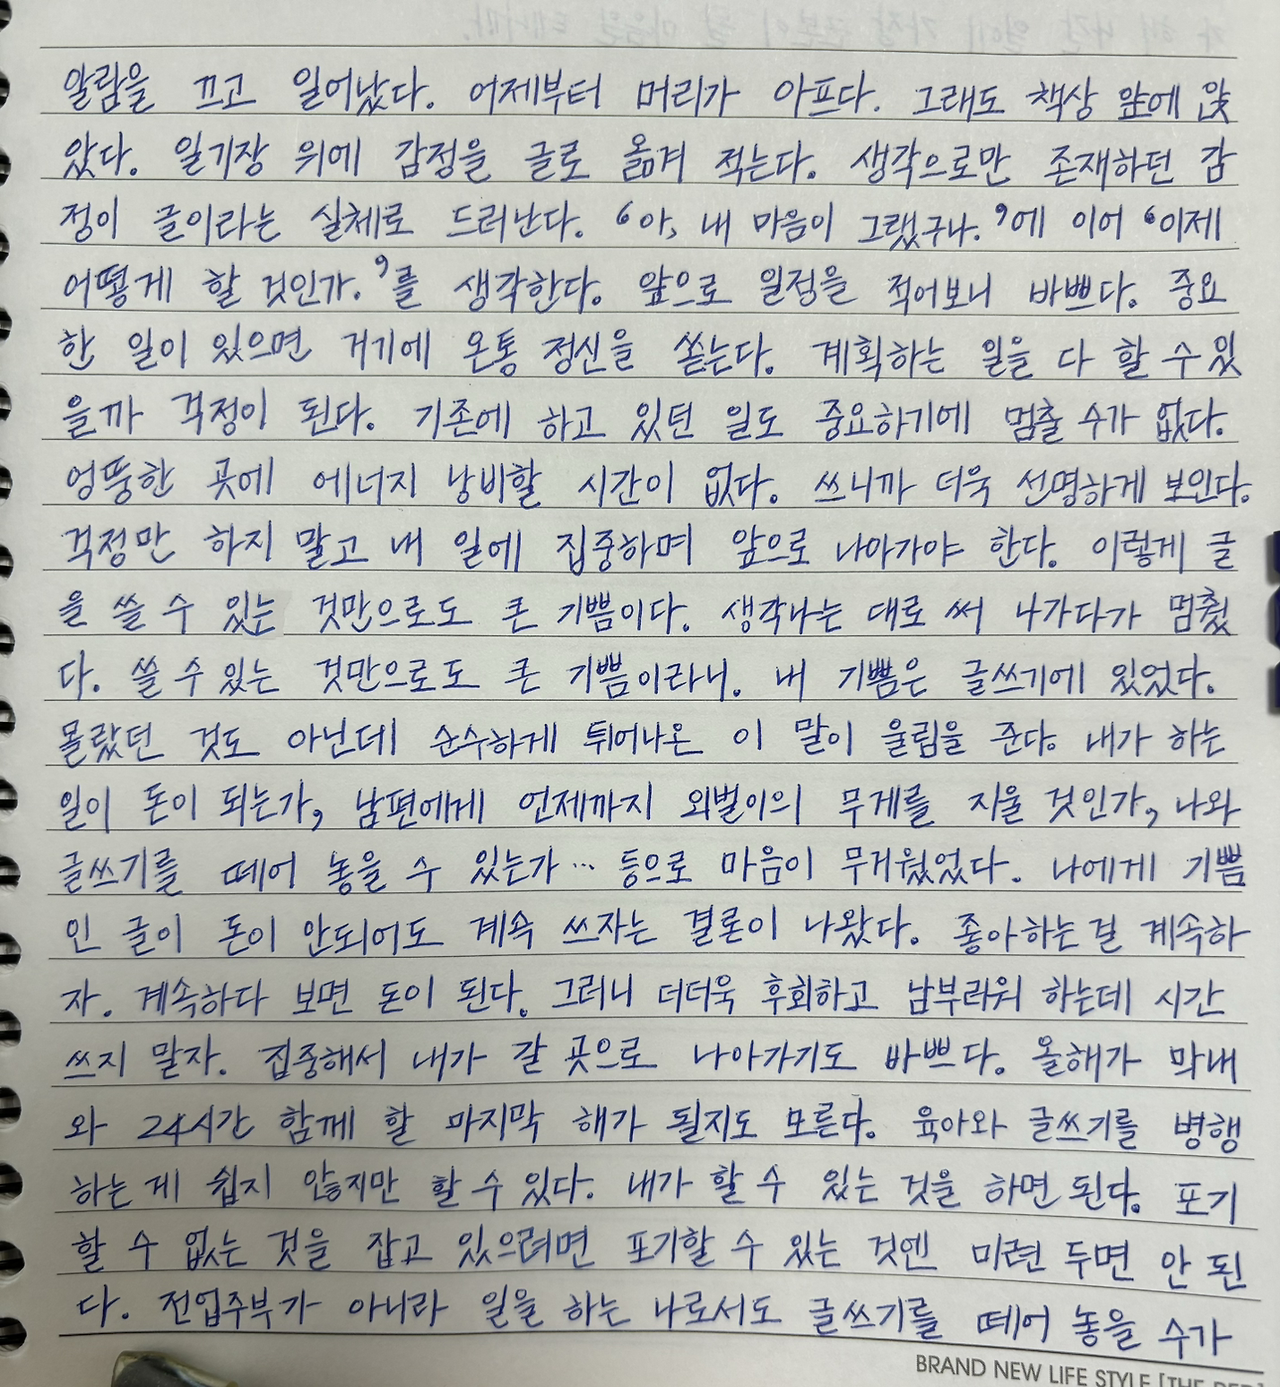 알람을 끄고 일어났다. 어제부터 머리가 아프다. 그래도 책상 앞에 앉
았다. 일기장 위에 감정을 글로 옮겨 적는다. 생각으로만 존재하던 감
정이 글이라는 실체로 드러난다. ‘아, 내 마음이 그랬구나.’에 이어 ‘이제
어떻게 할 것인가.’를 생각한다. 앞으로 일정을 적어보니 바쁘다. 중요
한 일이 있으면 거기에 온통 정신을 쏟는다. 계획하는 일을 다 할 수 있
을까 걱정이 된다. 기존에 하고 있던 일도 중요하기에 멈출 수가 없다.
엉뚱한 곳에 에너지 낭비할 시간이 없다. 쓰니까 더욱 선명하게 보인다.
걱정만 하지 말고 내 일에 집중하며 앞으로 나아가야 한다. 이렇게 글
을 쓸 수 있는 것만으로도 큰 기쁨이다. 생각나는 대로 써 나가다가 멈췄
다. 쓸 수 있는 것만으로도 큰 기쁨이라니. 내 기쁨은 글쓰기에 있었다.
몰랐던 것도 아닌데 순수하게 튀어나온 이 말이 울림을 준다. 내가 하는
일이 돈이 되는가, 남편에게 언제까지 외벌이의 무게를 지울 것인가, 나와
글쓰기를 떼어 놓을 수 있는가… 등으로 마음이 무거웠었다. 나에게 기쁨
인 글이 돈이 안되어도 계속 쓰자는 결론이 나왔다. 좋아하는 걸 계속하
자. 계속하다 보면 돈이 된다. 그러니 더더욱 후회하고 남부러워 하는데 시간
쓰지 말자. 집중해서 내가 갈 곳으로 나아가기도 바쁘다. 올해가 막내
와 24시간 함께 할 마지막 해가 될지도 모른다. 육아와 글쓰기를 병행
하는 게 쉽지 않지만 할 수 있다. 내가 할 수 있는 것을 하면 된다. 포기
할 수 없는 것을 잡고 있으려면 포기할 수 있는 것엔 미련 두면 안 된
다. 전업주부가 아니라 일을 하는 나로서도 글쓰기를 떼어 놓을 수가
BRAND NEW LIFE STYLE